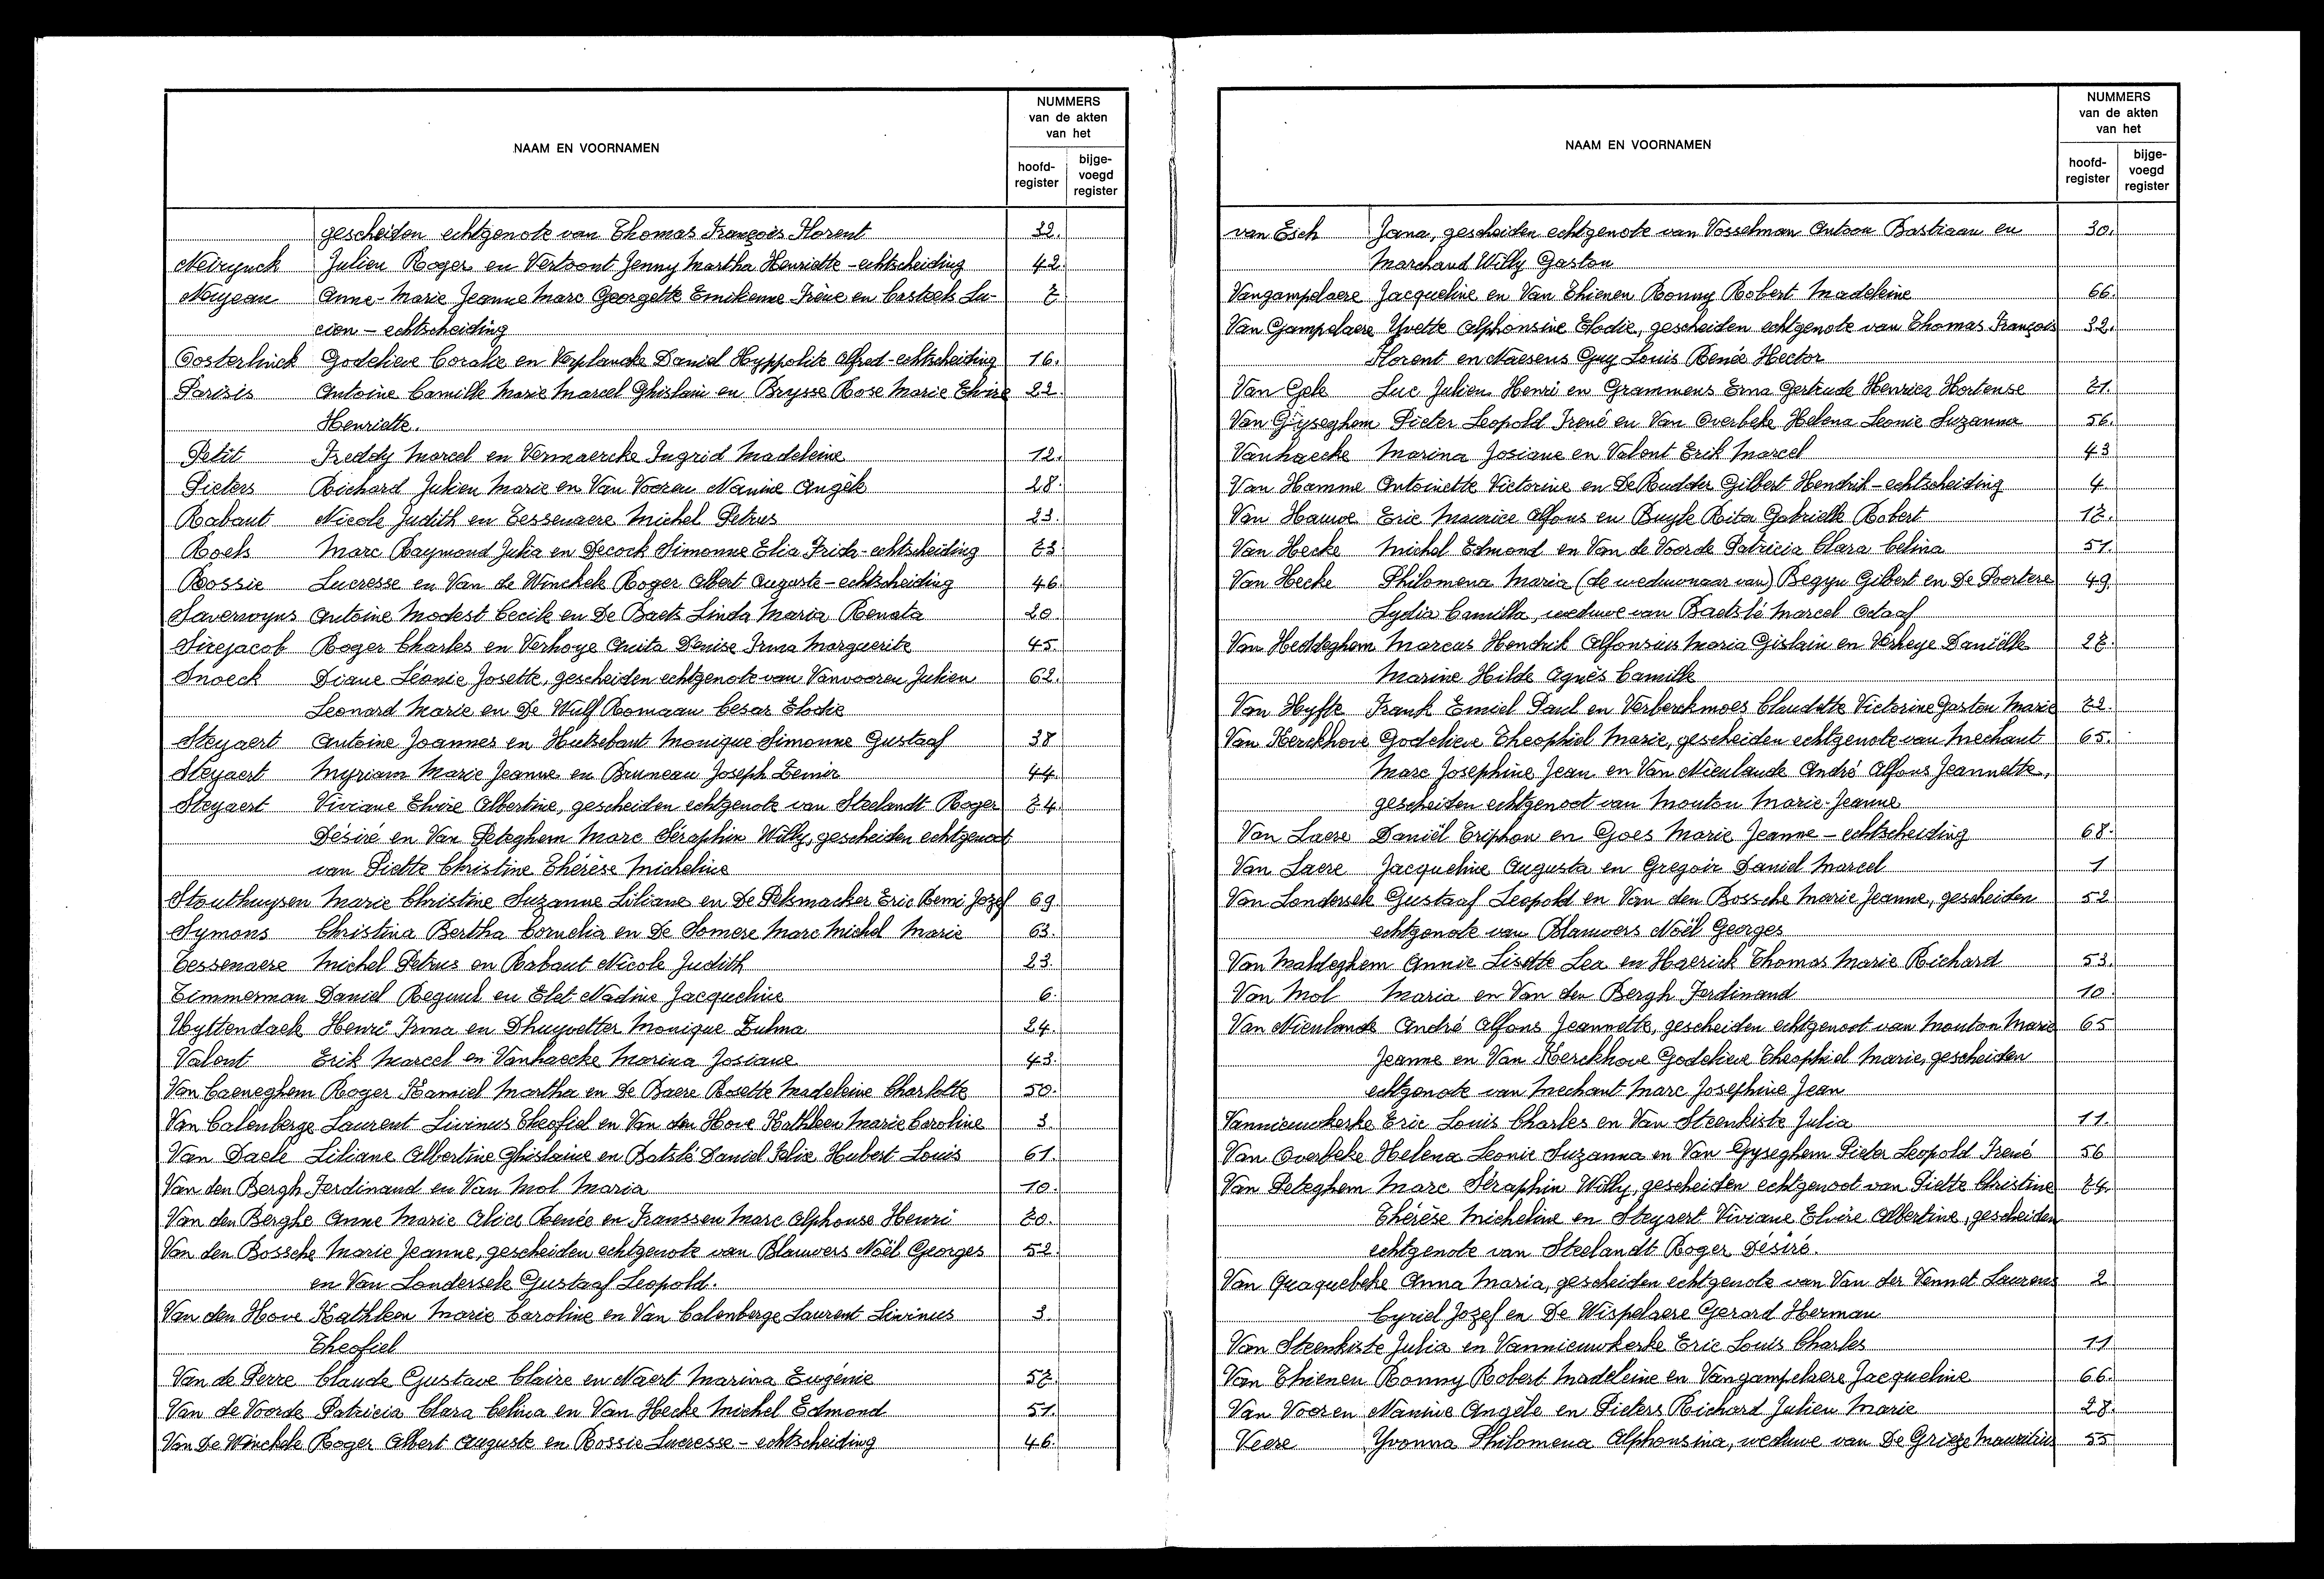 NAAM EN VOORNAMEN
NUMMERS van de akten van het
hoofd-register
bijge-voegd register
gescheiden echtgenote van Thomas François Florent 32.
Neirynck Julien Roger en Vertoont Jenny Martha Henriette - echtscheiding 42.
Noyeau Anne-Marie Jeanne Marc Georgette Emilienne Irène en Casteels Lu- 7
cien - echtscheiding
Oosterlinck Godelieve Coralie en Verplancke Daniel Hyppolite Alfred - echtscheiding 16.
Parisis Antoine Camille Marie Marcel Ghislain en Brysse Rose Marie Elvire 22.
Henriette.
Petit Freddy Marcel en Vermaercke Ingrid Madeleine 12.
Pieters Richard Julien Marie en Van Vooren Nanine Angèle 28.
Rabaut Nicole Judith en Tessenaere Michel Petrus 23.
Roels Marc Raymond Julia en Decock Simonne Elia Frida - echtscheiding 73
Rossie Lucresse en Van de Winckele Roger Albert Auguste - echtscheiding 46.
Savernoyns Antoine Modest Cecile en De Baets Linda Maria Renata 20.
Sirejacob Roger Charles en Verhoye Anita Denise Irma Marguerite 45.
Snoeck Diane Léonie Josette, gescheiden echtgenote van Vanvooren Julien 62.
Leonard Marie en De Wulf Romaan Cesar Elodie
Steyaert Antoine Joannes en Hutsebaut Monique Simonne Gustaaf 38
Steyaert Myriam Marie Jeanne en Bruneau Joseph Zenier 44
Steyaert Viviane Elvire Albertine, gescheiden echtgenote van Steelandt Roger 74.
Désiré en Van Peteghem Marc Séraphin Willy, gescheiden echtgenoot
van Piette Christine Thérèse Micheline
Stouthuysen Marie Christine Suzanne Liliane en De Pelsmacker Eric Remi Jozef 69
Symons Christina Bertha Cornelia en De Somere Marc Michel Marie 63.
Tessenaere Michel Petrus en Rabaut Nicole Judith 23.
Timmerman Daniel Regnul en Elet Nadine Jacqueline 6.
Uyttendaele Henri Irma en Dhuyvetter Monique Zulma 24.
Valent Erik Marcel en Vanhaecke Marina Josiane 43.
Van Caeneghem Roger Kamiel Martha en De Baere Rosette Madeleine Charlotte 50.
Van Calenberge Laurent Livinus Theofiel en Van den Hove Kathleen Marie Caroline 3.
Van Daele Liliane Albertine Ghislaine en Batslé Daniel Felix Hubert Louis 61.
Van den Bergh Ferdinand en Van Mol Maria 10.
Van den Berghe Anne Marie Alice Renée en Franssen Marc Alphonse Henri 70.
Van den Bossche Marie Jeanne, gescheiden echtgenote van Blauwers Noël Georges 52.
en Van Londersele Gustaaf Leopold.
Van den Hove Kathleen Marie Caroline en Van Calenberge Laurent Livinus 3.
Theofiel
Van de Perre Claude Gustave Claire en Naert Marina Eugénie 57.
Van de Voorde Patricia Clara Celina en Van Hecke Michel Edmond 51.
Van De Winckele Roger Albert Auguste en Rossie Lucresse - echtscheiding 46.
NAAM EN VOORNAMEN
NUMMERS van de akten van het
hoofd-register
bijge-voegd register
van Esch Jana, gescheiden echtgenote van Vosselman Antoon Bastiaan en 30.
Marchand Willy Gaston
Vangampelaere Jacqueline en Van Thienen Ronny Robert Madeleine 66.
Van Gampelaere Yvette Alphonsine Elodie, gescheiden echtgenote van Thomas François 32.
Florent en Naesens Guy Louis Renée Hector
Van Gele Luc Julien Henri en Grammens Erna Gertrude Henrica Hortense 71.
Van Gyseghem Pieter Leopold Irené en Van Overbeke Helena Leonie Suzanna 56.
Vanhaecke Marina Josiane en Valent Erik Marcel 43
Van Hamme Antoinette Victorine en De Rudder Gilbert Hendrik - echtscheiding 4
Van Hauwe Eric Maurice Alfons en Buyle Rita Gabrielle Robert 17.
Van Hecke Michel Edmond en Van de Voorde Patricia Clara Celina 51.
Van Hecke Philomena Maria (de weduwnaar van) Begyn Gilbert en De Poortere 49.
Lydia Camilla, weduwe van Baetslé Marcel Odaaf
Van Heddeghem Marcus Hendrik Alfonsius Maria Gislain en Verheye Daniëlle 27.
Marine Hilde Agnès Camille
Van Hyfte Frank Emiel Paul en Verberckmoes Claudette Victorine Gaston Marie 72.
Van Kerckhove Godelieve Theophiel Marie, gescheiden echtgenote van Mechant 65.
Marc Josephine Jean en Van Nieulande André Alfons Jeannette,
gescheiden echtgenoot van Mouton Marie-Jeanne
Van Laere Daniël Triphon en Goes Marie Jeanne - echtscheiding 68.
Van Laere Jacqueline Augusta en Gregoir Daniel Marcel 1
Van Londersele Gustaaf Leopold en Van den Bossche Marie Jeanne, gescheiden 52
echtgenote van Blauwers Noël Georges
Van Maldeghem Annie Lisette Lea en Haerick Thomas Marie Richard 53.
Van Mol Maria en Van den Bergh Ferdinand 10.
Van Nieulande André Alfons Jeannette, gescheiden echtgenoot van Mouton Marie 65
Jeanne en Van Kerckhove Godelieve Theophiel Marie, gescheiden
echtgenote van Mechant Marc Josephine Jean
Vannieuwkerke Eric Louis Charles en Van Steenkiste Julia 11.
Van Overbeke Helena Leonie Suzanna en Van Gyseghem Pieter Leopold Irené 56
Van Peteghem Marc Séraphin Willy, gescheiden echtgenoot van Piette Christine 74.
Thérèse Micheline en Steyaert Viviane Elvire Albertine, gescheiden
echtgenote van Steelandt Roger Désiré.
Van Quaquebeke Anna Maria, gescheiden echtgenote van Van der Vennet Laurens 2
Cyriel Jozef en De Wispelaere Gerard Herman
Van Steenkiste Julia en Vannieuwkerke Eric Louis Charles 11
Van Thienen Ronny Robert Madeleine en Vangampelaere Jacqueline 66.
Van Vooren Nanine Angèle en Pieters Richard Julien Marie 28.
Veere Yvonna Philomena Alphonsina, weduwe van De Grieze Mauritius 55